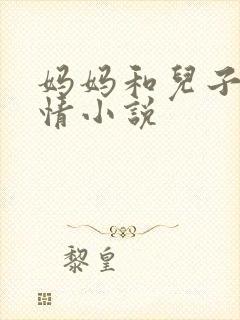 妈妈和兒子
情小说
黎皇